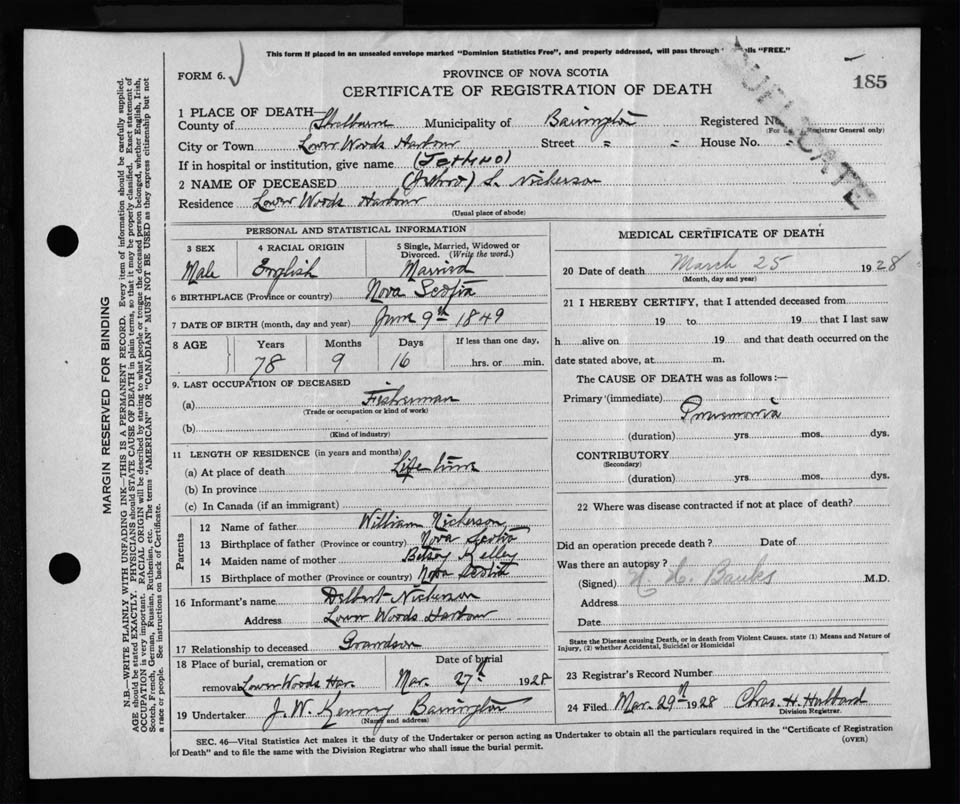 This form if placed in an unsealed envelope marked "Dominion Statistics Free", and properly addressed, will pass through "FREE."
FORM 6.
PROVINCE OF NOVA SCOTIA
CERTIFICATE OF REGISTRATION OF DEATH
185
DUPLICATE
1 PLACE OF DEATH—
County of Shelburne Municipality of Barrington Registered No.
(For Registrar General only)
City or Town Lower Woods Harbour Street = = House No. =
If in hospital or institution, give name (JETHRO)
2 NAME OF DECEASED (Jethro) S. Nickerson
Residence Lower Woods Harbour
(Usual place of abode)
PERSONAL AND STATISTICAL INFORMATION
3 SEX 4 RACIAL ORIGIN 5 Single, Married, Widowed or Divorced. (Write the word.)
Male English Married
6 BIRTHPLACE (Province or country) Nova Scotia
7 DATE OF BIRTH (month, day and year) June 9th 1849
8 AGE Years Months Days If less than one day,
78 9 16 hrs. or min.
9. LAST OCCUPATION OF DECEASED
(a) Fisherman
(Trade or occupation or kind of work)
(b)
(Kind of industry)
11 LENGTH OF RESIDENCE (in years and months)
(a) At place of death Life time
(b) In province
(c) In Canada (if an immigrant)
Parents
12 Name of father William Nickerson
13 Birthplace of father (Province or country) Nova Scotia
14 Maiden name of mother Betsey Kelley
15 Birthplace of mother (Province or country) Nova Scotia
16 Informant's name Delbert Nickerson
Address Lower Woods Harbour
17 Relationship to deceased Grandson
18 Place of burial, cremation or removal Lower Woods Har. Date of burial Mar. 27th 1928
19 Undertaker J. W. Kenney Barrington
(Name and address)
MEDICAL CERTIFICATE OF DEATH
20 Date of death March 25 1928
(Month, day and year)
21 I HEREBY CERTIFY, that I attended deceased from
19 to 19 that I last saw
h alive on 19 and that death occurred on the
date stated above, at m.
The CAUSE OF DEATH was as follows:—
Primary (immediate) Pneumonia
(duration) yrs. mos. dys.
CONTRIBUTORY
(Secondary)
(duration) yrs. mos. dys.
22 Where was disease contracted if not at place of death?
Did an operation precede death? Date of
Was there an autopsy?
(Signed) H. H. Banks M.D.
Address
Date
State the Disease causing Death, or in death from Violent Causes, state (1) Means and Nature of
Injury, (2) whether Accidental, Suicidal or Homicidal
23 Registrar's Record Number
24 Filed Mar. 29th 1928 Chas. H. Hubbard
Division Registrar.
SEC. 46—Vital Statistics Act makes it the duty of the Undertaker or person acting as Undertaker to obtain all the particulars required in the "Certificate of Registration
of Death" and to file the same with the Division Registrar who shall issue the burial permit.
(OVER)
MARGIN RESERVED FOR BINDING
N.B.—WRITE PLAINLY WITH UNFADING INK—THIS IS A PERMANENT RECORD. Every item of information should be carefully supplied.
AGE should be stated EXACTLY. PHYSICIANS should STATE CAUSE OF DEATH in plain terms, so that it may be properly classified. Exact statement of
OCCUPATION is very important. RACIAL ORIGIN will be described by stating to what people or tongue the deceased person belonged, whether English, Irish,
Scotch, French, German, Russian, Ruthenian, etc. The terms "AMERICAN" OR "CANADIAN" MUST NOT BE USED as they express citizenship but not
a race or people. See instructions on back of Certificate.